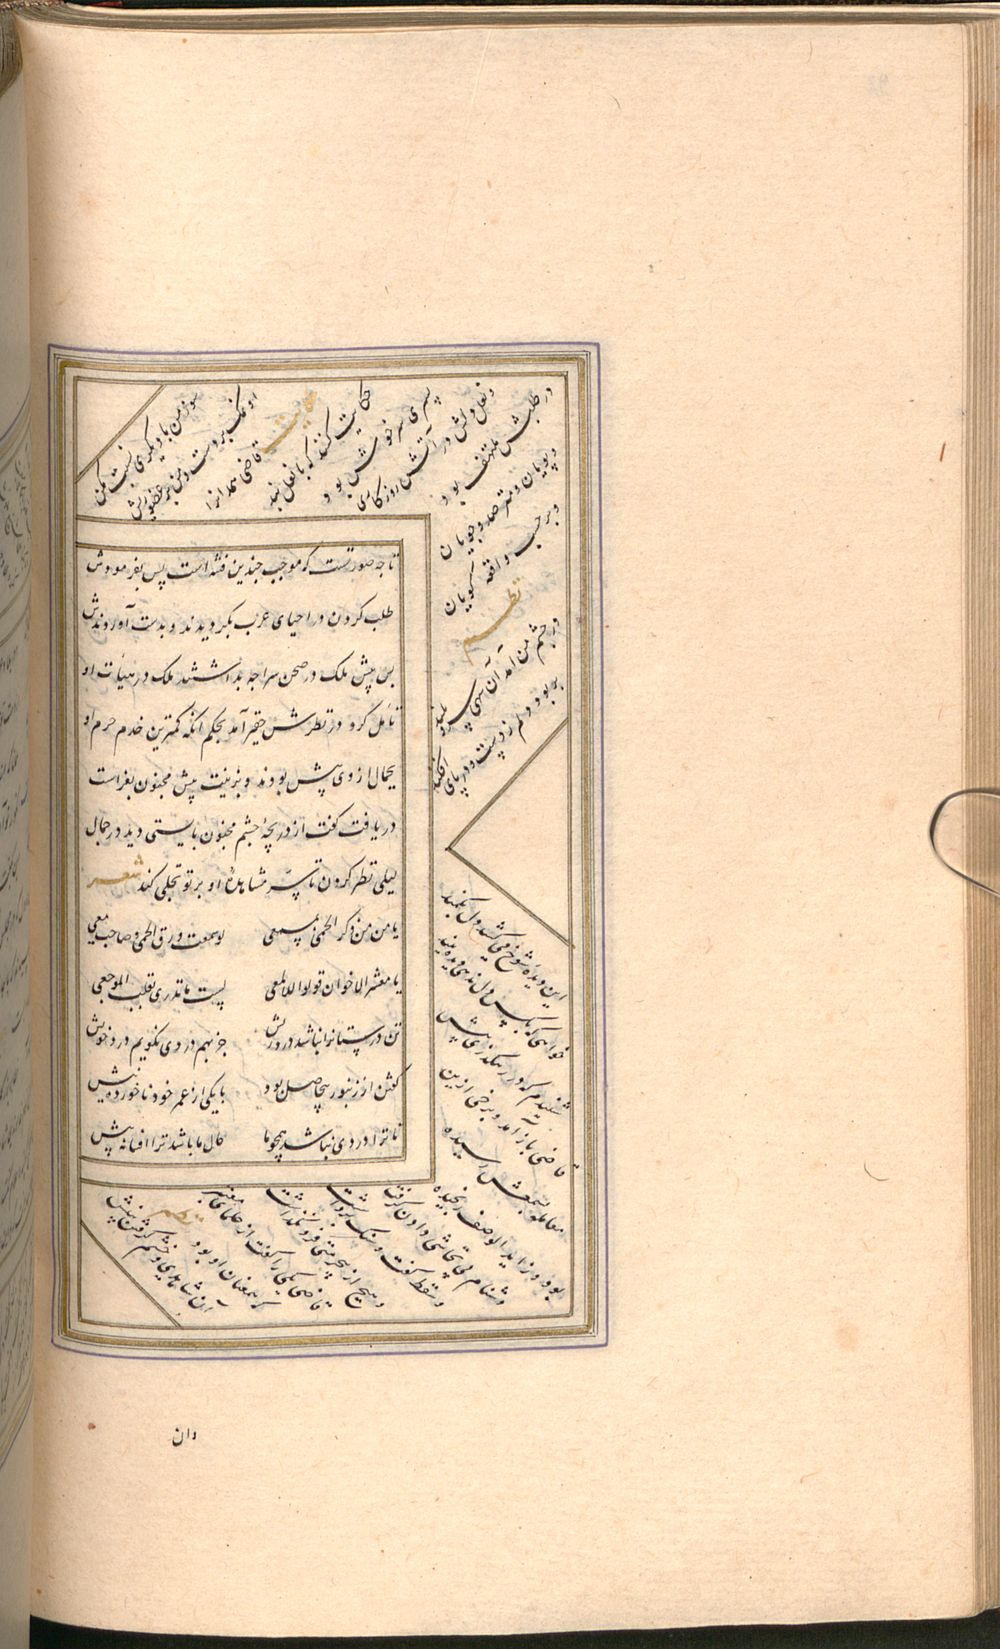 تا چه صورتست که موجب چندین فتنه است پس بفرمودش
طلب کردن در احیای عرب بگردیدند و بدست آوردندش
پس پیش ملک در صحن سراچه بداشتند ملک در هیئات او
تأمل کرد در نظرش حقیر آمد بحکم آنکه کمترین خدم حرم او
بجمال از وی پیش بودند و بزینت بیش مجنون بفراست
دریافت گفت از دریچهٔ چشم مجنون بایستی دید در جمال
لیلی نظر کردن تا سر مشاهدهٔ او بر تو تجلی کند شعر
ما مر من ذکر الحمی بمسمعی لو سمعت ورق الحمی صاحت معی
یا معشر الاخوان قولوا للمعی لست ماتدری بقلب الموجعی
تن درستانرا نباشد درد ریش جز بهم دردی نگویم درد خویش
گفتن از زنبور بیحاصل بود با یکی از عمر خود ناخورده نیش
تا ترا دردی نباشد همچو ما حال ما باشد ترا افسانه پیش
سوز من با دیگری نسبت مکن
او نمک بر دست و من بر عضو ریش
حکایت
قاضی همدانرا
حکایت کنند که با نعلبند
پسری سرخوش بود و
نعل دلش در آتش روزگاری
در طلبش متلهف بود
و پویان و مترصد و جویان
و بر حسب واقعه گویان
نظم
در چشم من آمد آن سهی سرو بلند
بربود دلم ز دست و در پای افکند
این دیدهٔ شوخ می کشد دل بکمند
خواهی که بکس دل ندهی دیده ببند
شنیدم که در رهگذری پیش
قاضی باز آمد و برخی ازین
معامله بسمعش رسیده
بود و زاید الوصف رنجیده
دشنام بی تحاشی دادن گرفت
و سقط گفت و سنگ برداشت
و هیچ از بی حرمتی فرو نگذاشت
قاضی یکی را گفت از علمای معتبر
که همعنان او بود
آن شاهدی و خشم گرفتن بینش
وان